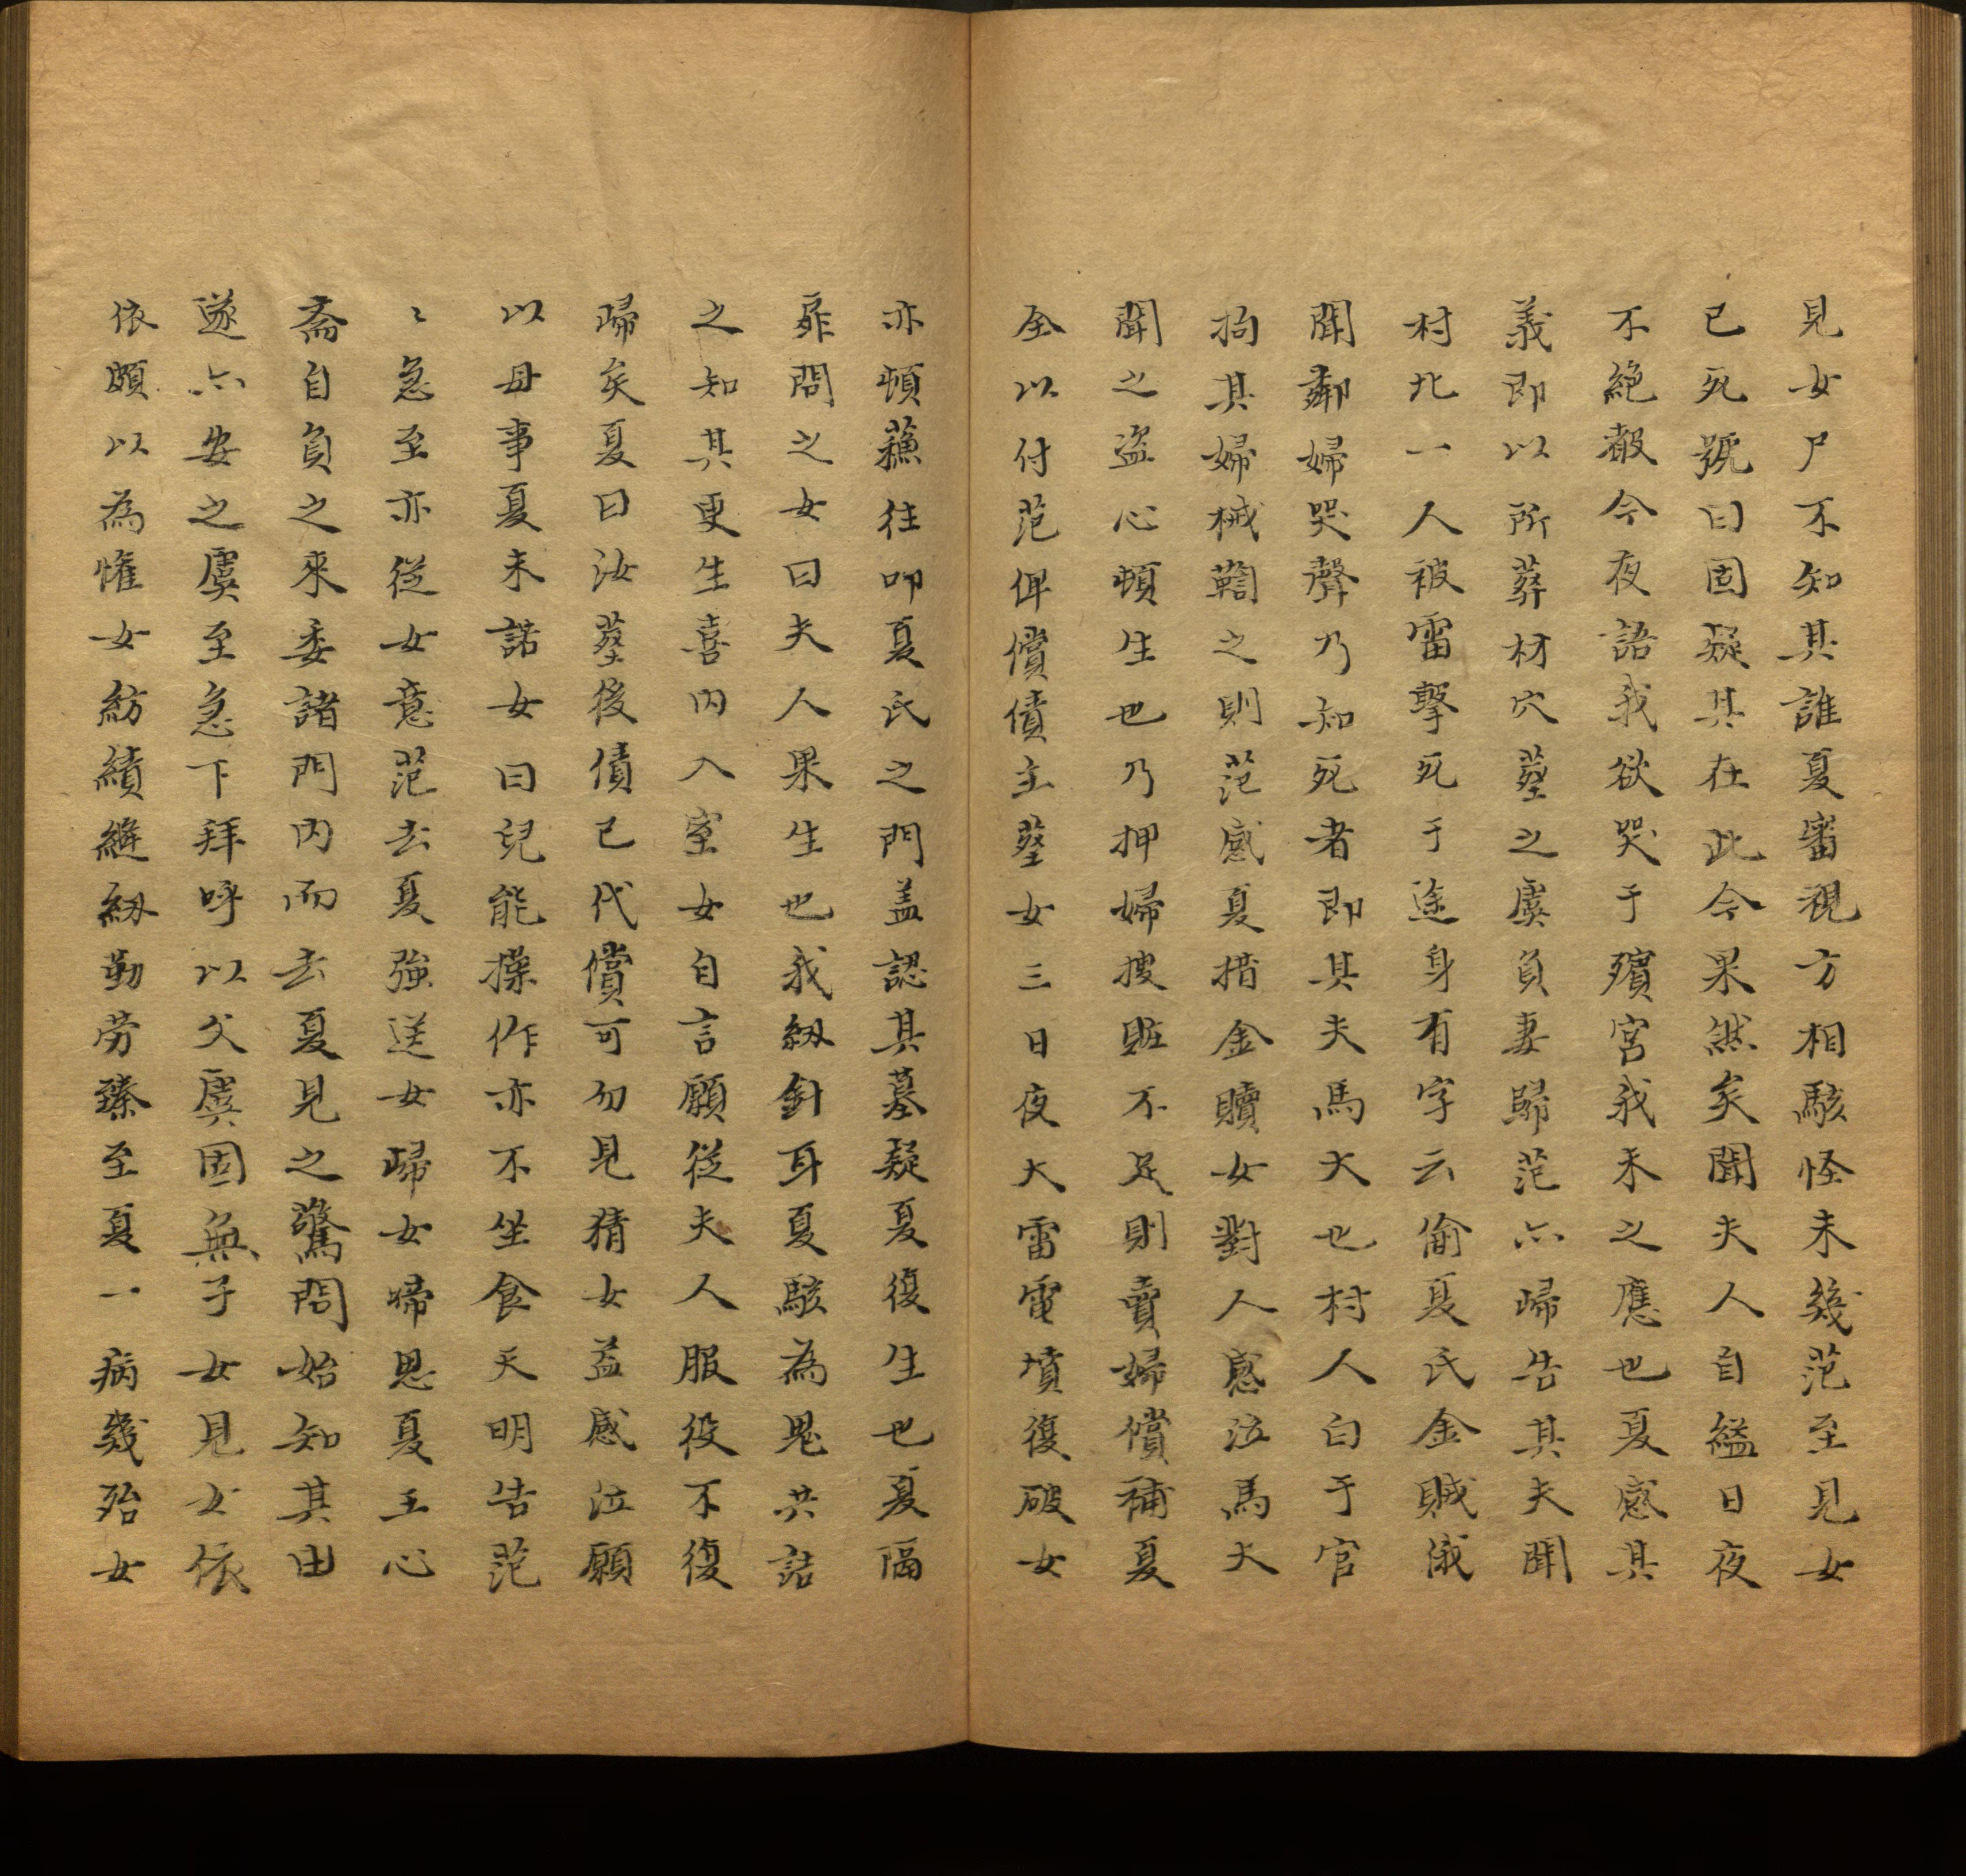 見女尸不知其誰夏審視方相駭怪未幾范至見女
已死號曰固疑其在此今果然矣聞夫人自縊日夜
不絕聲今夜語我欲哭于殯宮我未之應也夏感其
義即以所葬材穴塟之虞負妻歸范亦歸告其夫聞
村北一人被雷擊死于途身有字云偷夏氏金賊俄
聞鄰婦哭聲乃知死者即其夫馬大也村人白于官
拘其婦械鞫之則范感夏措金贖女對人感泣馬大
聞之盜心頓生也乃押婦搜賍不足則賣婦償補夏
全以付范俾償債主塟女三日夜大雷電墳復破女
亦頓蘓往叩夏氏之門盖認其墓疑夏復生也夏隔
扉問之女曰夫人果生也我紉針耳夏駭為鬼共詰
之知其更生喜内入室女自言願從夫人服役不復
歸矣夏曰汝塟後債已代償可勿見猜女益感泣願
以母事夏未諾女曰兒能操作亦不坐食天明告范
〻急至亦從女意范去夏強送女歸女啼思夏王心
斋自負之來委諸門内而去夏見之驚問始知其由
遂亦安之虞至急下拜呼以父虞固無子女見女依
依頗以為懽女紡績縫紉勤勞臻至夏一病幾殆女